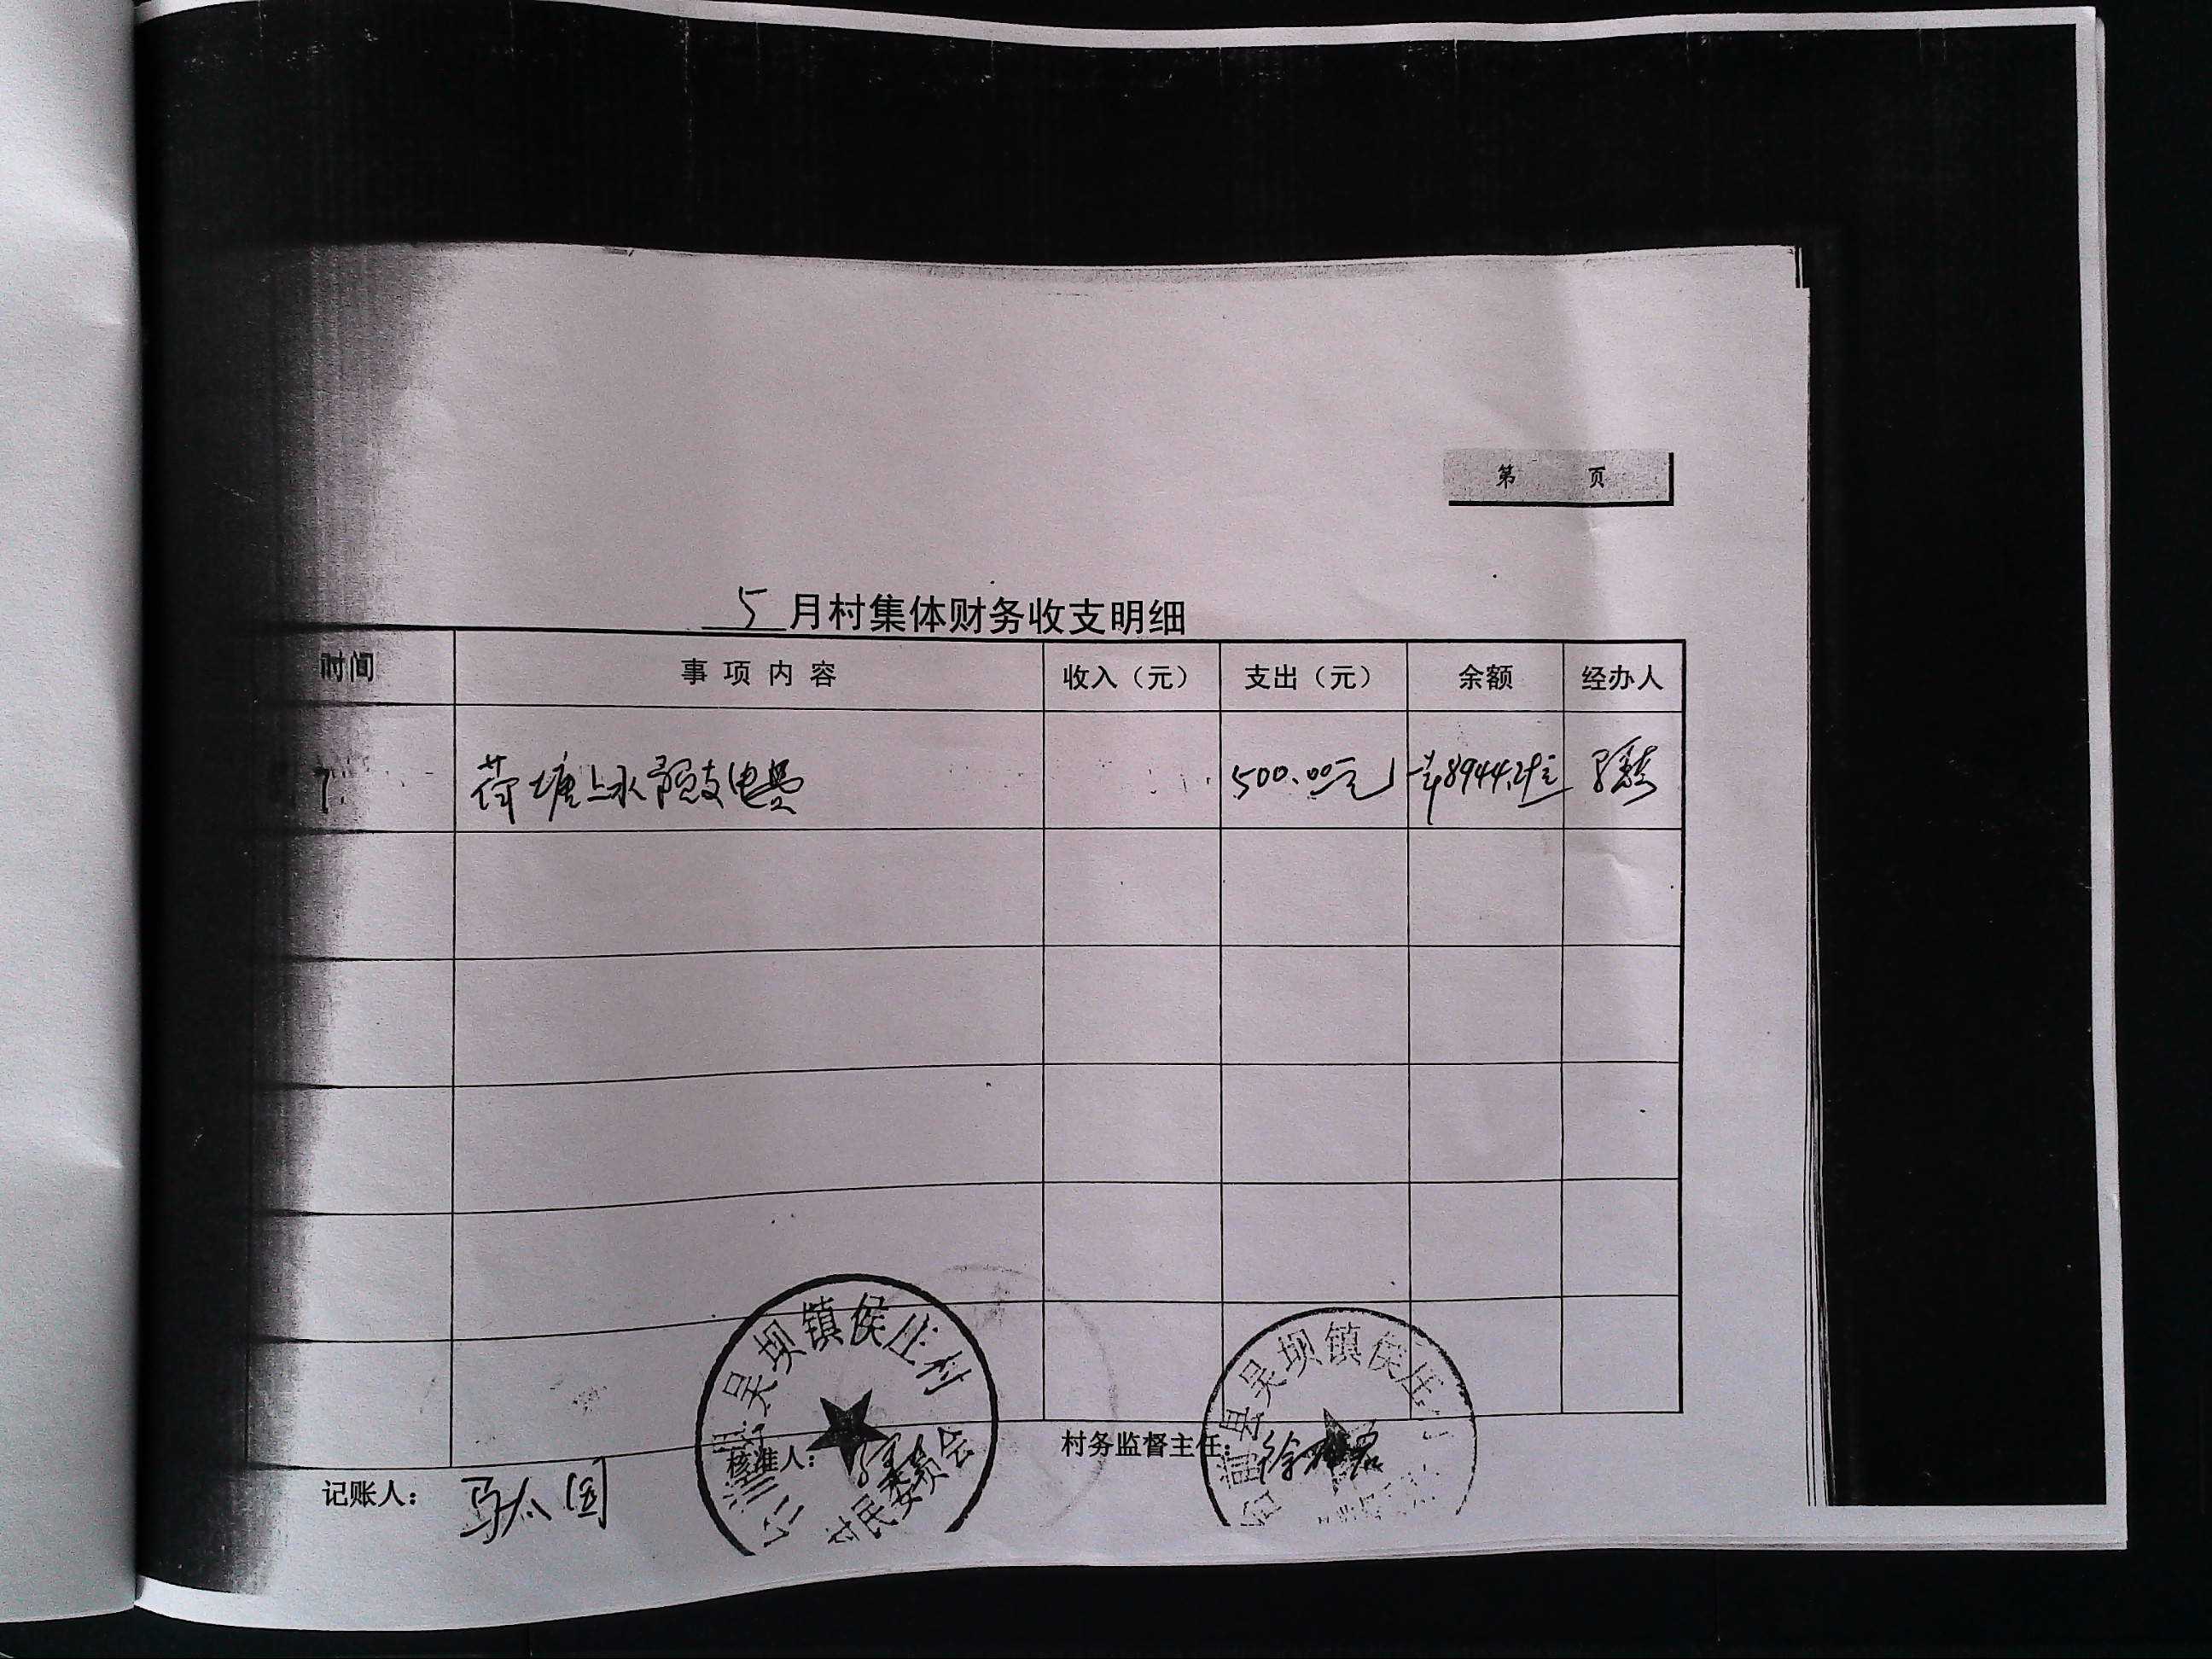 第 页
5月村集体财务收支明细
时间 事项内容 收入（元） 支出（元） 余额 经办人
7 荷塘上水预支电费 500.00元 8944.
核准人： 村务监督主任：徐
记账人：马太国
吴坝镇侯庄村
村民委员会
县吴坝镇侯庄